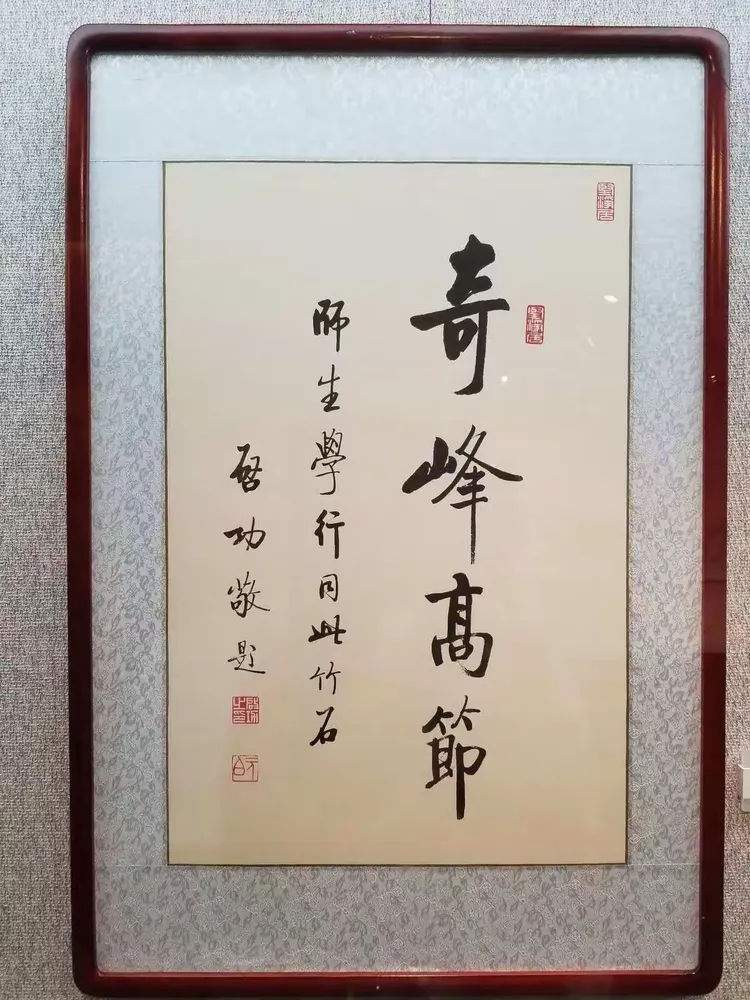 奇峰高節
師生學行同此竹石
啓功敬题